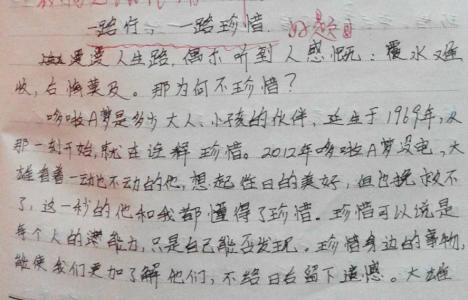 一路行,一路珍惜 好题目
漫漫人生路,偶尔听到人感慨:覆水难
收,后悔莫及。那为何不珍惜?
哆啦A梦是多少大人、小孩的伙伴,诞生于1969年,从
那一刻开始,就在诠释珍惜。2012年哆啦A梦没电,大
雄看着一动也不动的他,想起往日的美好,但也挽救不
了,这一秒的他和我都懂得了珍惜。珍惜可以说是
每个人的潜能力,只是自己能否发现。珍惜身边的事物,
能使我们更加了解他们,不给日后留下遗憾。大雄